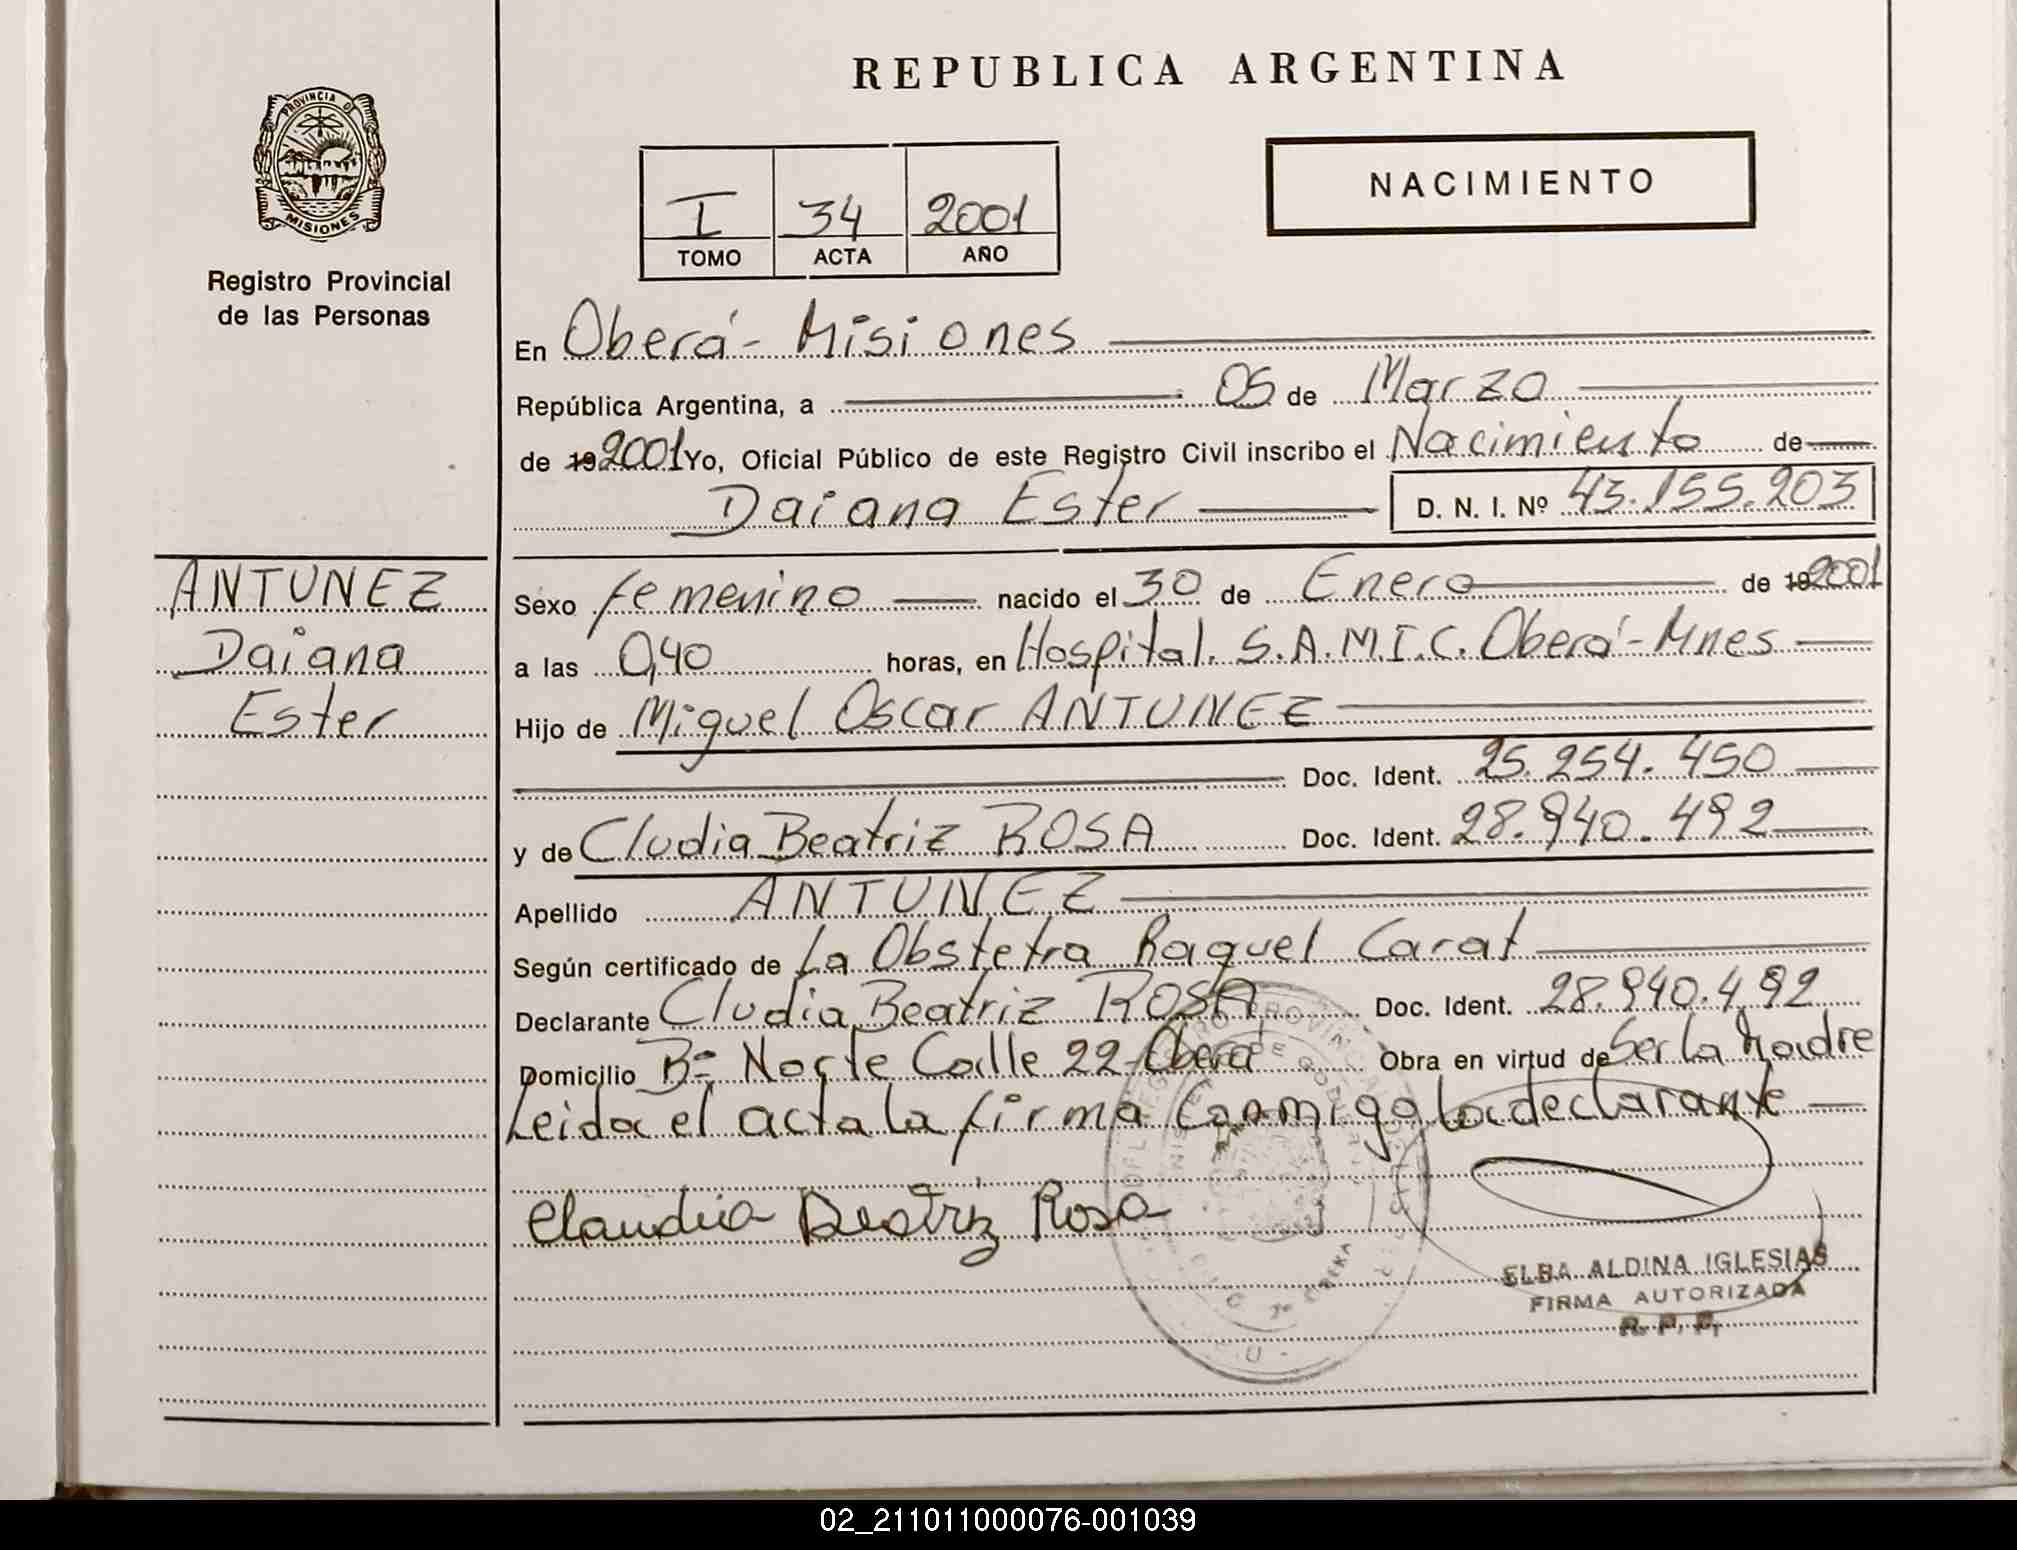 REPUBLICA ARGENTINA
PROVINCIA D
MISIONES
Registro Provincial
de las Personas
I 34 2001
TOMO ACTA AÑO
NACIMIENTO
En Oberá - Misiones
República Argentina, a 05 de Marzo
de 19 2001 Yo, Oficial Público de este Registro Civil inscribo el Nacimiento de
Daiana Ester D. N. I. Nº 43.155.203
ANTUNEZ
Daiana
Ester
Sexo femenino nacido el 30 de Enero de 19 2001
a las 0,40 horas, en Hospital. S.A.M.I.C. Oberá - Mnes
Hijo de Miguel Oscar ANTUNEZ
Doc. Ident. 25.254.450
y de Cludia Beatriz ROSA Doc. Ident. 28.940.492
Apellido ANTUNEZ
Según certificado de La Obstetra Raquel Carat
Declarante Cludia Beatriz ROSA Doc. Ident. 28.940.492
Domicilio Bº Norte Calle 22 - Oberá Obra en virtud de Ser la Madre
Leida el acta la firma Conmigo la declarante
Claudia Beatriz Rosa
ELBA ALDINA IGLESIAS
FIRMA AUTORIZADA
R. P. P.
02_211011000076-001039